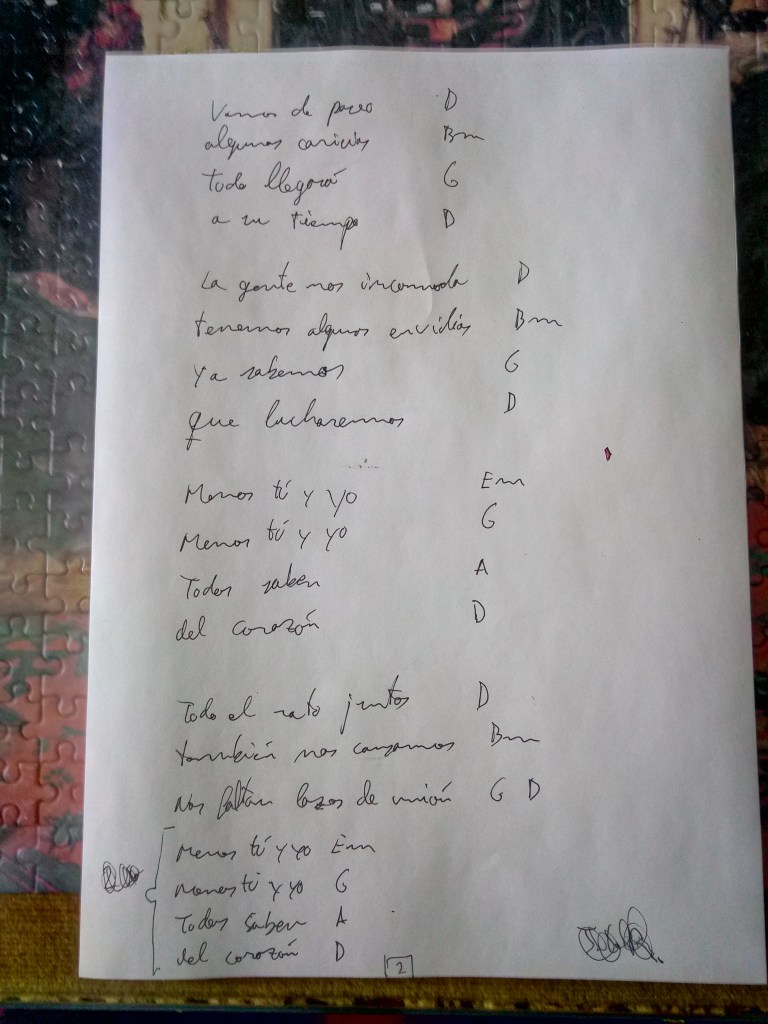 Vamos de paseo D
algunas caricias Bm
todo llegará G
a su tiempo D
La gente nos incomoda D
tenemos algunos envidias Bm
ya sabemos G
que lucharemos D
Menos tú y yo Em
Menos tú y yo G
Todos saben A
del corazón D
Todo el rato juntos D
también nos cansamos Bm
Nos faltan lazos de unión G D
Menos tú y yo Em
menos tú y yo G
Todos saben A
del corazón D
2